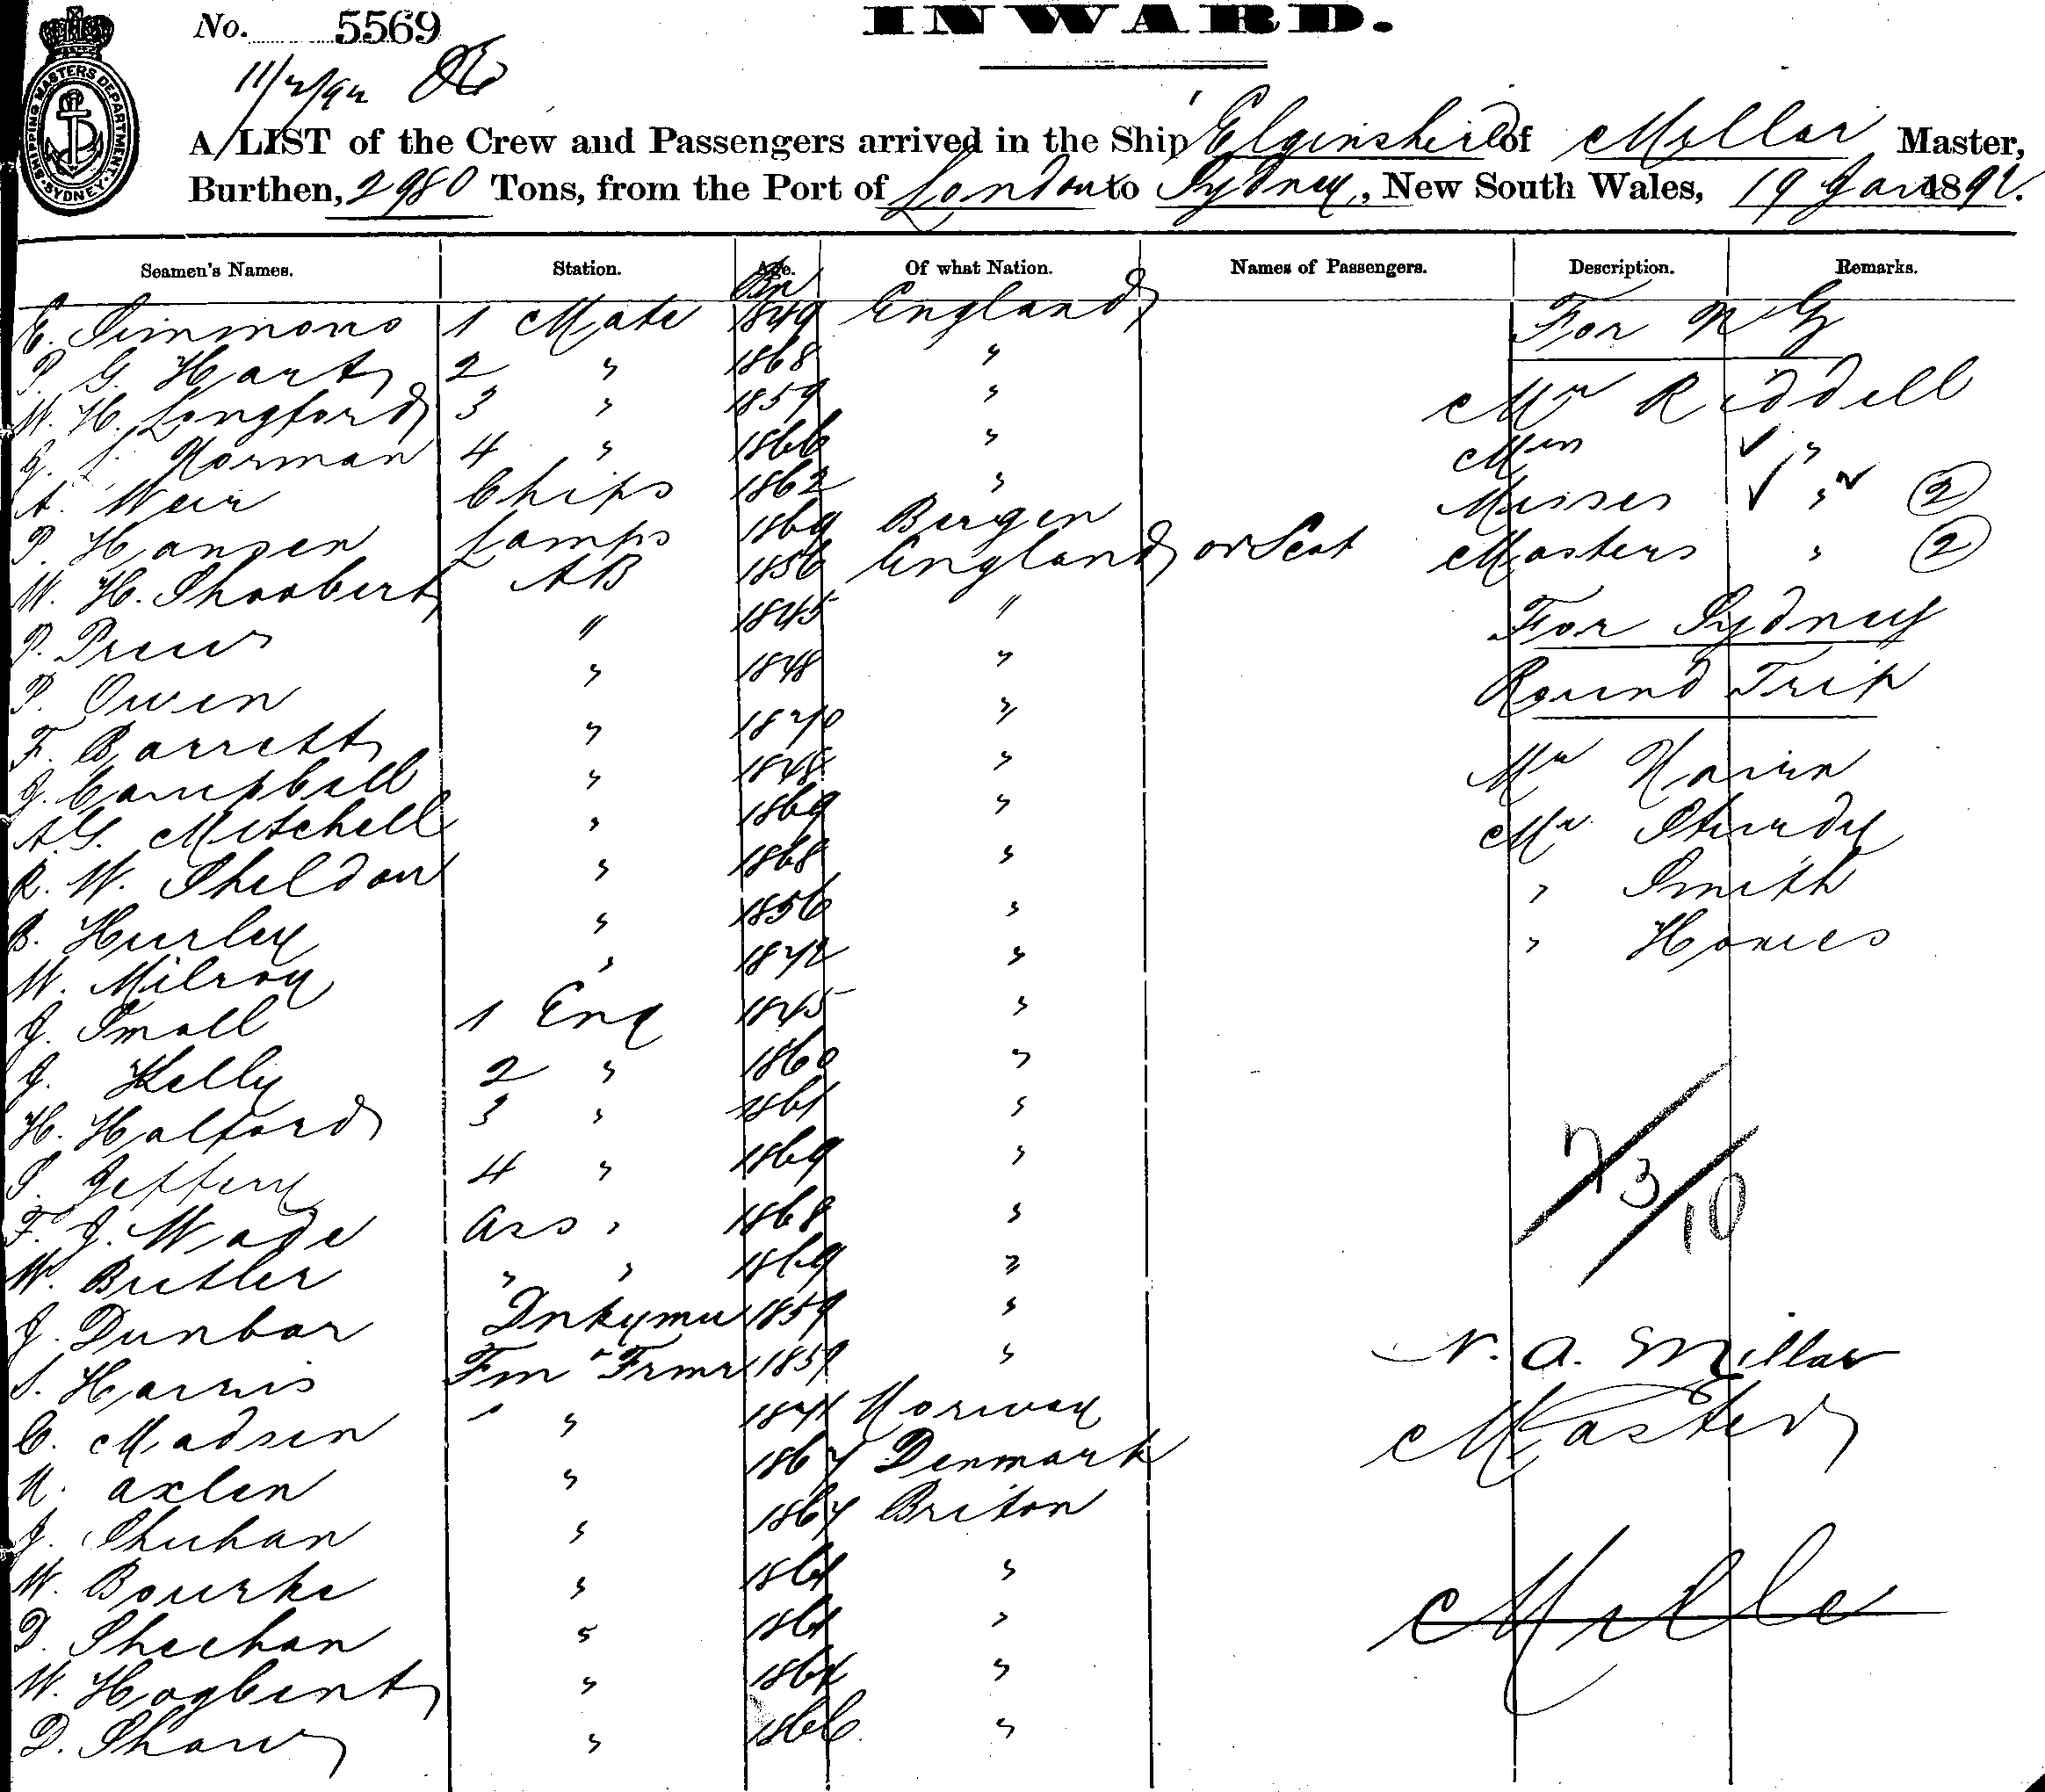 No. 5569
INWARD.
SHIPPING MASTERS DEPARTMENT. SYDNEY
11/2/92
A LIST of the Crew and Passengers arrived in the Ship Elginshire of Millar Master,
Burthen, 2980 Tons, from the Port of London to Sydney, New South Wales, 19 Jan 1892.
Seamen's Names. Station. Age. Of what Nation. Names of Passengers. Description. Remarks.
Bn
E. Simmons 1 Mate 1849 England For N Z
P. G. Hart 2 " 1868 "
W. H. Longford 3 " 1859 " Mr Riddell
Norman 4 " 1866 " Mrs "
A. Weir Chips 1862 " Misses " 2
P. Hansen Lamps 1869 Bergen
W. H. Shoobert AB 1856 England or Scot Masters " 2
P. Preus " 1845 " For Sydney
P. Owen " 1848 " Round Trip
F. Barrett " 1870 "
J. Campbell " 1848 " Mr Nairn
A. G. Mitchell " 1869 " Mr Sturdy
R. W. Sheldon " 1868 " " Smith
B. Hurley " 1856 " "
W. Milroy " 1872 "
J. Small 1 Eng 1845 "
J. Kelly 2 " 1860 "
H. Halford 3 " 1861 "
S. Jeffery 4 " 1869 "
7/3/10
F. J. Wade Ass " 1868 "
W. Butler " " 1869 "
J. Dunbar Dnkymn 1859 "
S. Harris Fm & Frmr 1859 " N. A. Millar
C. Madsen " 1871 Norway Master
N. Axlen " 1867 Denmark
J. Shuhan " 1867 Briton
W. Bourke " 1861 "
D. Sheehan " 1861 "
W. Hogbent " 1864 "
D. Shaw " 1866 "